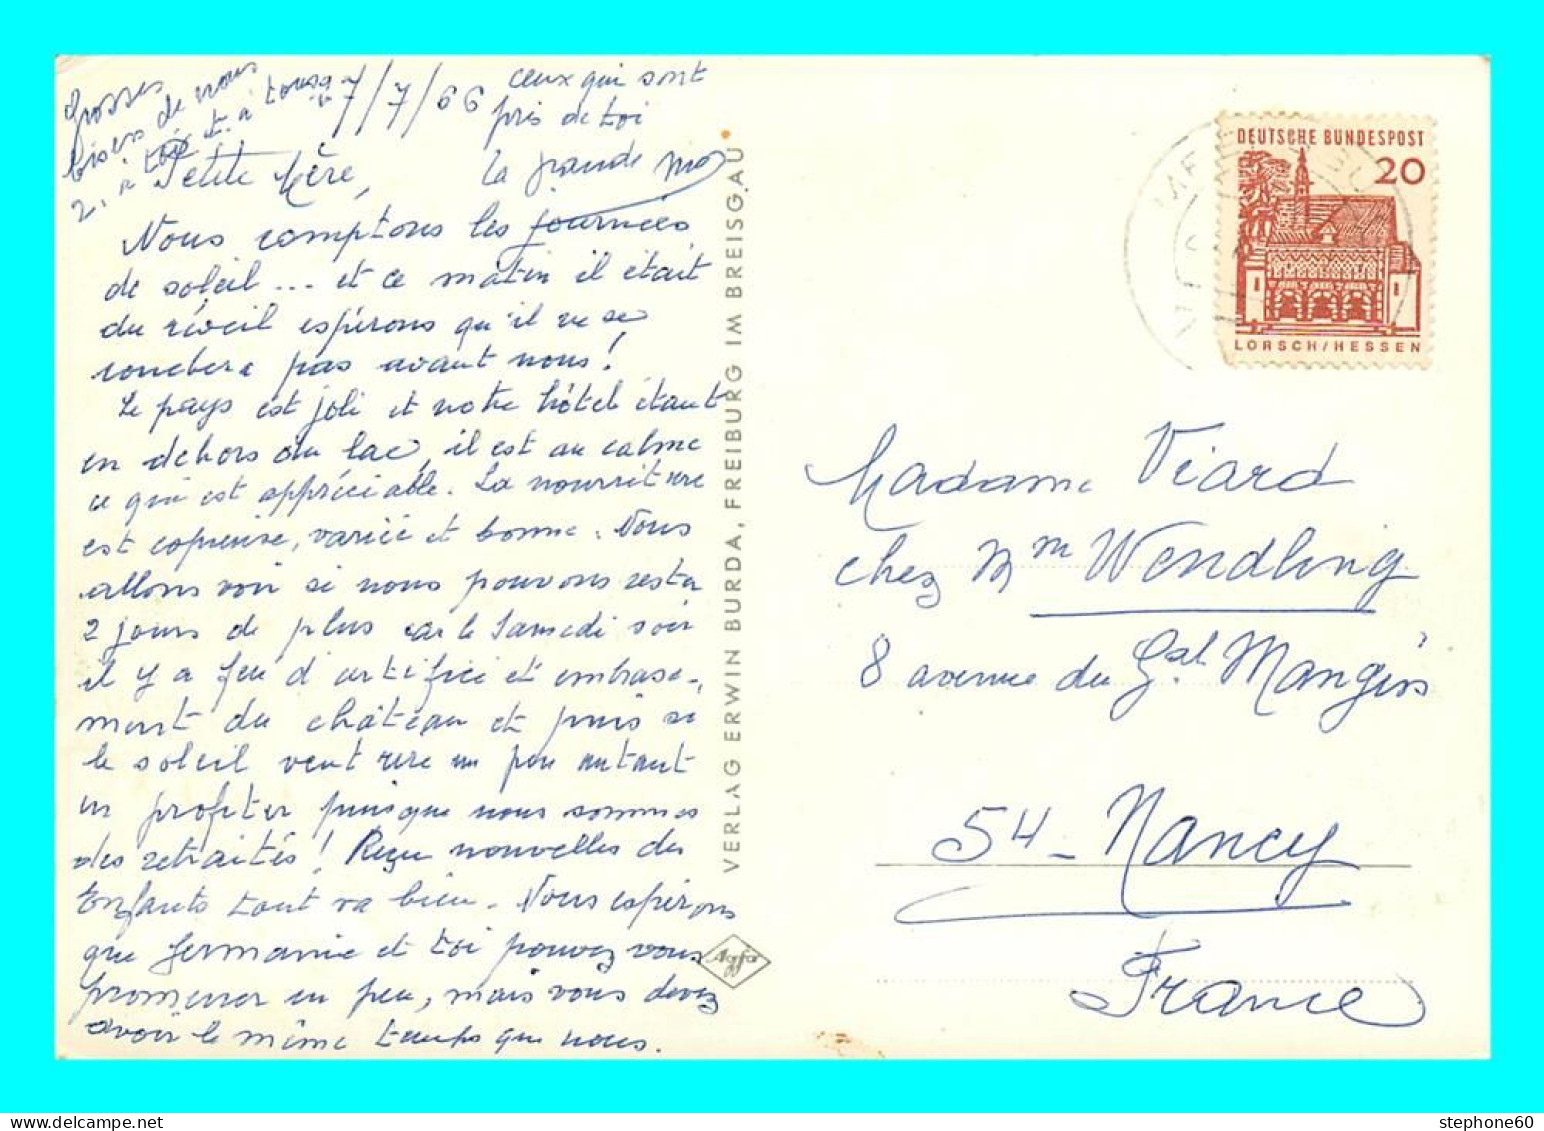 7/7/66
Petite Mère,
Nous comptons les journées
de soleil ... et ce matin il était
du réveil espérons qu'il ne se
couchera pas avant nous !
Le pays est joli et notre hôtel étant
en dehors du lac, il est au calme
ce qui est appréciable. La nourriture
est copieuse, variée et bonne. Nous
allons voir si nous pouvons rester
2 jours de plus car le Samedi soir
il y a feu d'artifice et embrase-
ment du château et puis si
le soleil veut rire un peu autant
en profiter puisque nous sommes
des retraités ! Reçu nouvelles des
Enfants tout va bien. Nous espérons
que Germaine et toi pouvez vous
promener un peu, mais vous devez
avoir le même temps que nous.
Grosses
bises de nous
2, à toi et à tous
ceux qui sont
près de toi
La grande
VERLAG ERWIN BURDA, FREIBURG IM BREISGAU
Agfa
DEUTSCHE BUNDESPOST
20
LORSCH/HESSEN
Madame Viard
chez Mm Wendling
8 avenue du Gal Mangin
54 - Nancy
France
stephone60